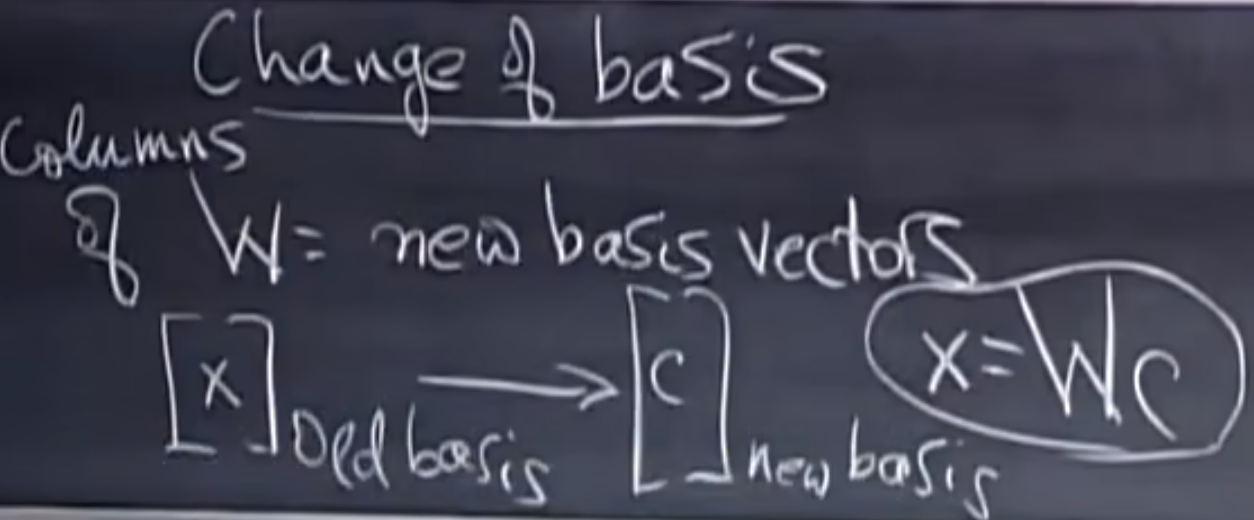 Change of basis
Columns
of W = new basis vectors
[x] old basis → [c] new basis
x = Wc